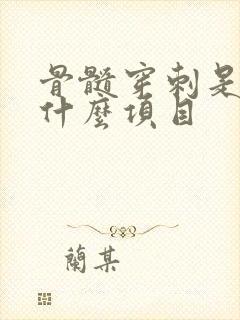 骨髓穿刺是
什麼項目
蘭某